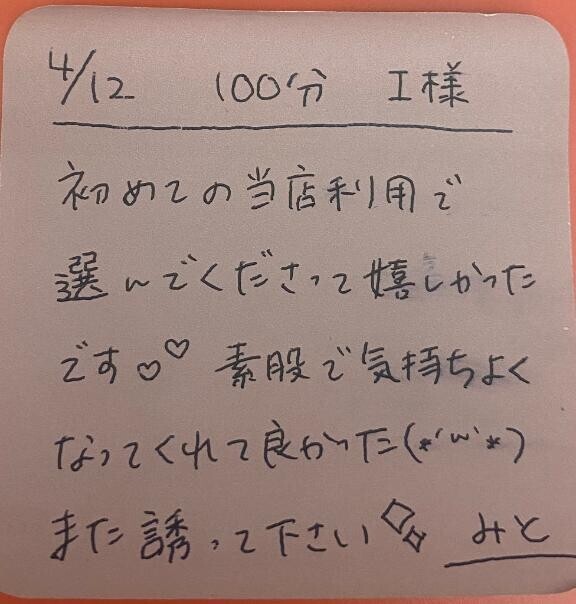 4/12 100分 I様
初めての当店利用で
選んでくださって嬉しかった
です♡♡ 素股で気持ちよく
なってくれて良かった(*´ω`*)
また誘って下さい みと